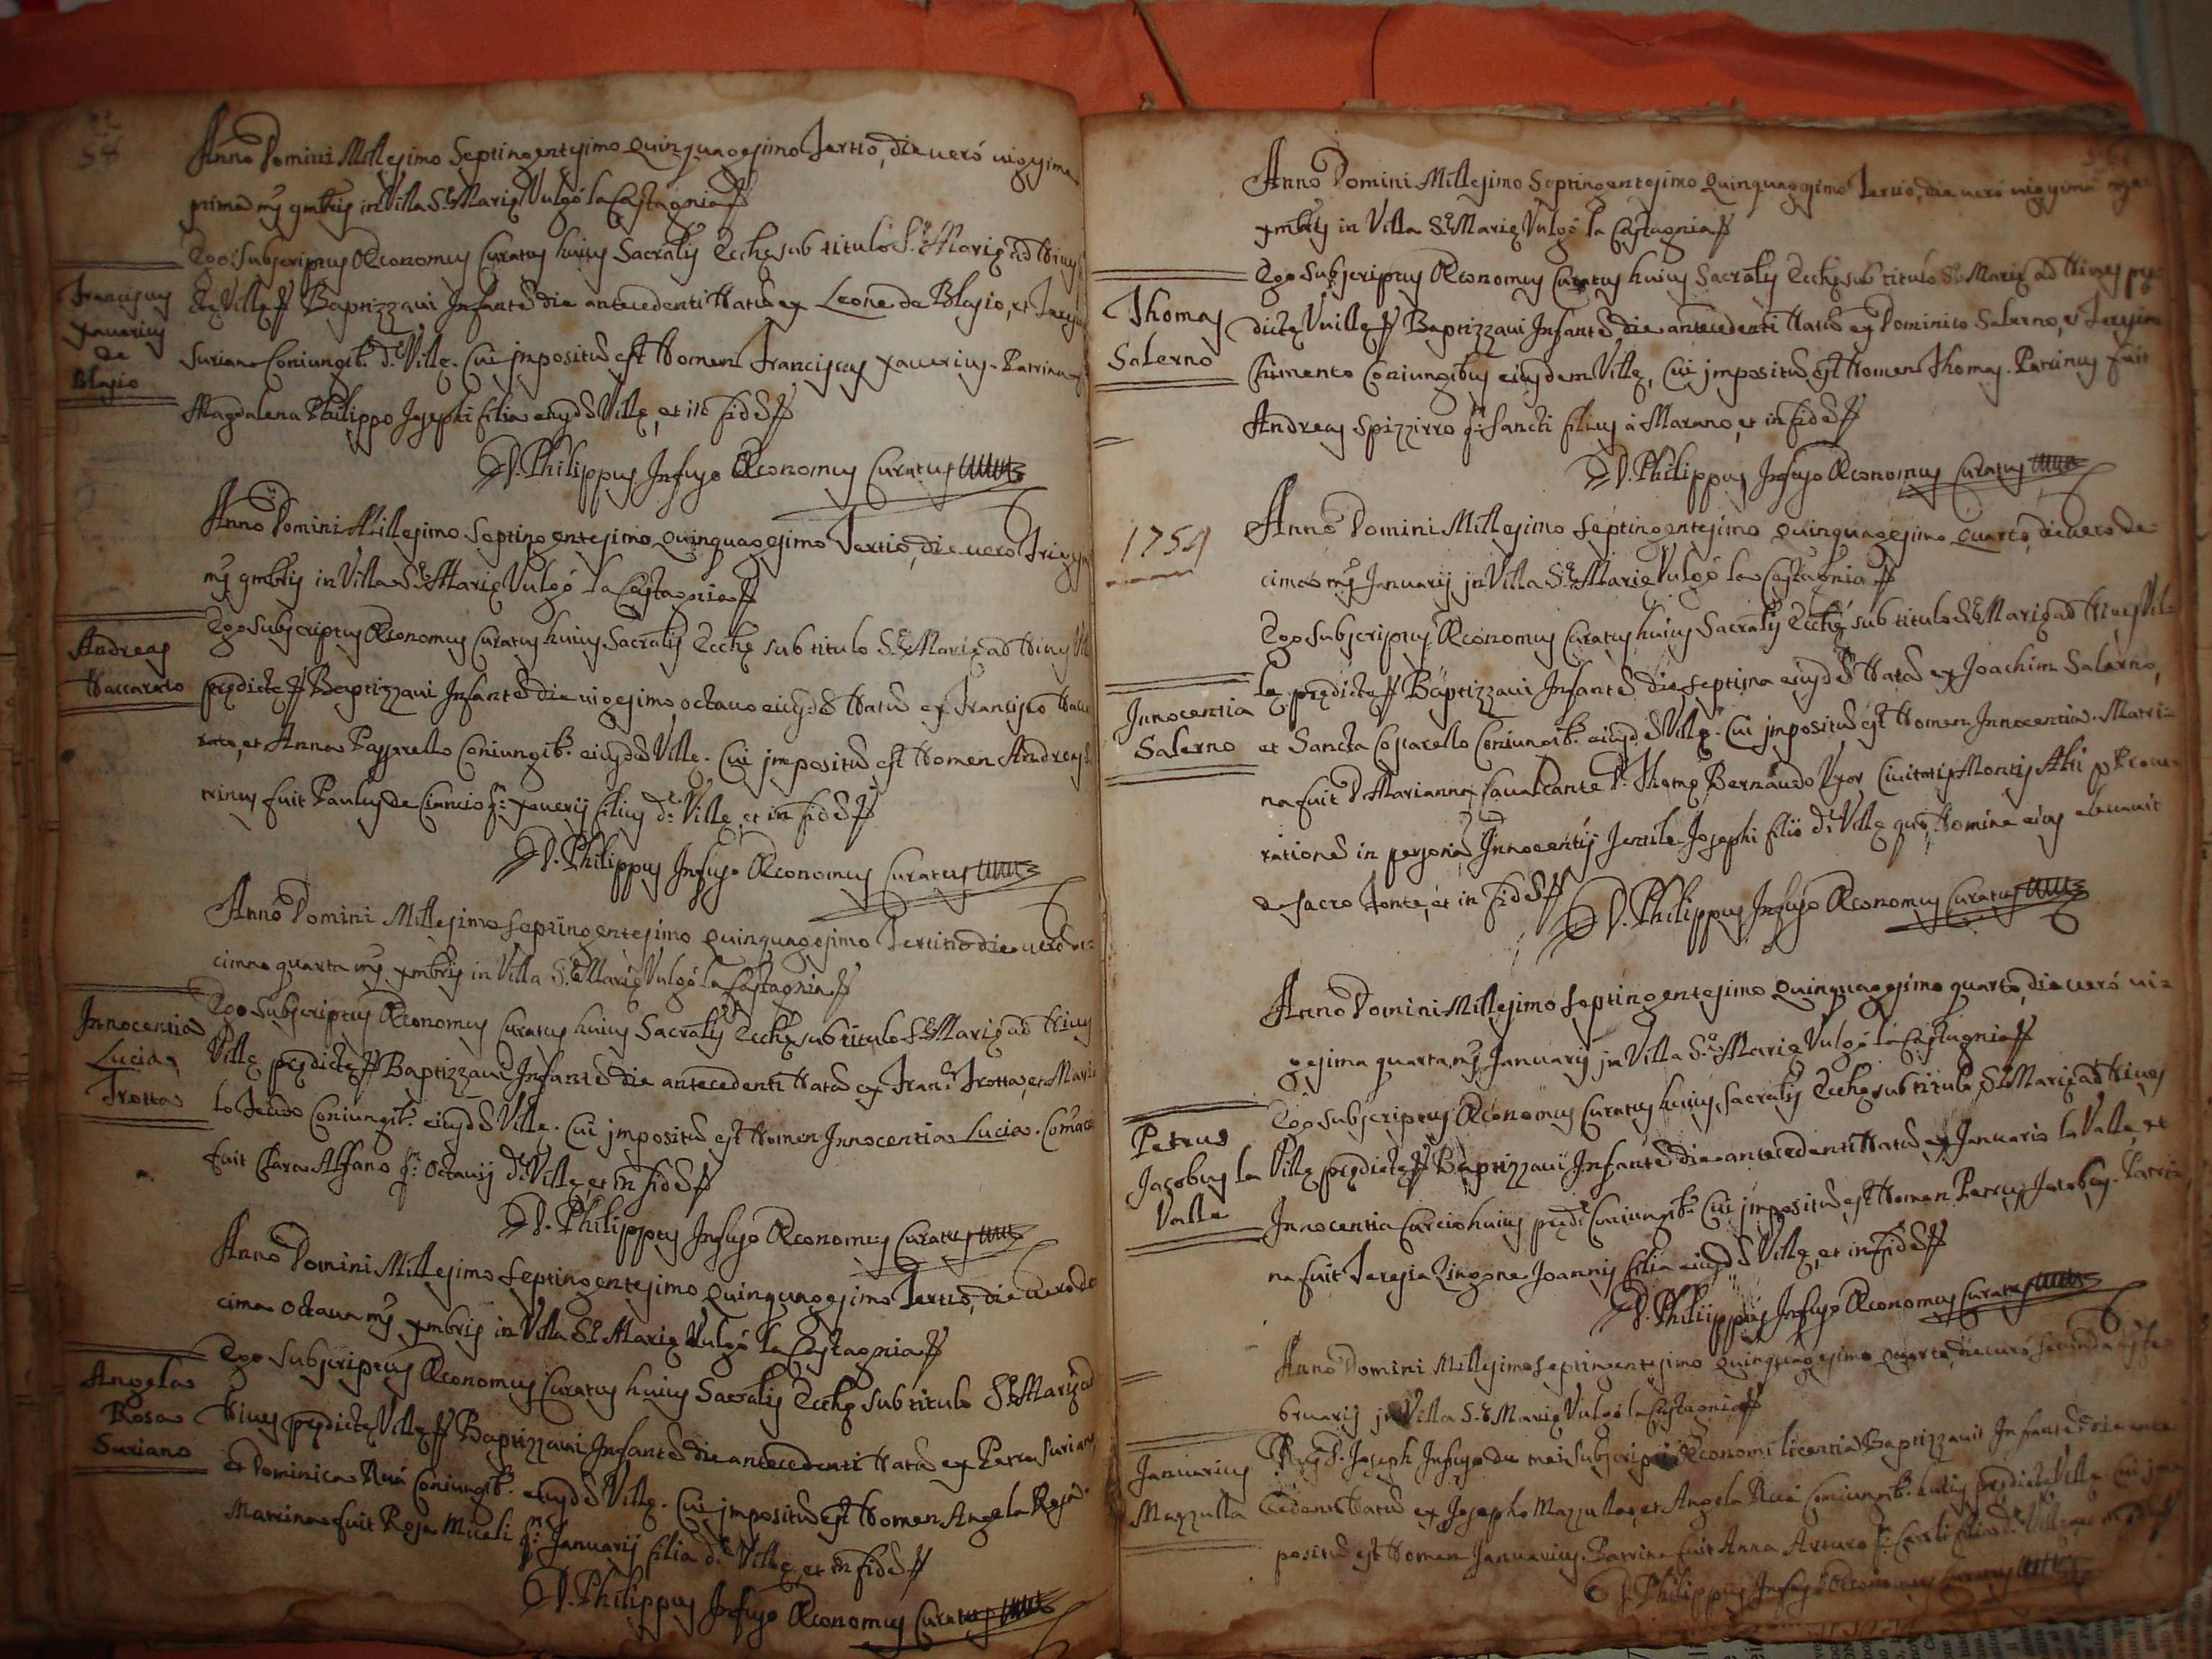 54
Anno Domini Millesimo Septingentesimo Quinquagesimo Tertio, die verò vigesima
prima m̃s 9mbris in Villa S.ę Marię Vulgò la Castagnia //
Ego Subscriptus Œconomus Curatus huius Sacralis Ecclę sub titulo S.ę Marię ad Nives
Franciscus
Xaverius
de
Blasio
dctę Villę // Baptizzavi Infantẽ die antecedenti Natũ ex Leone de Blasio, et
Suriano Coniugib.s d.ę Villę. Cui impositũ est Nomen Franciscus Xaverius. Patrina
Magdalena Philippo Josephi filia eiusdẽ Villę, et in fidẽ //
D. Philippus Infuso Œconomus Curatus
Anno Domini Millesimo Septingentesimo Quinquagesimo Tertio, die vero Trigesima
m̃s 9mbris in Villa S.ę Marię Vulgò la Castagnia //
Andreas
Naccarato
Ego Subscriptus Œconomus Curatus huius Sacralis Ecclę sub titulo S.ę Marię ad Nives
prędictę // Baptizzavi Infantẽ die vigesimo octavo eiusdẽ Natũ ex Francisco Nacca
rato, et Anna Passarello Coniugib.s eiusdẽ Villę. Cui impositũ est Nomen Andreas
trinus fuit Paulus de Ciancio q.m Xaverij filius d.ę Villę, et in fidẽ //
D. Philippus Infuso Œconomus Curatus
Anno Domini Millesimo Septingentesimo Quinquagesimo Tertio die vero de=
cima quarta m̃s Xmbris in Villa S.ę Marię Vulgò la Castagnia //
Innocentia
Lucia
Trotta
Ego Subscriptus Œconomus Curatus huius Sacralis Ecclę sub titulo S.ę Marię ad Nives
Villę prędictę // Baptizzavi Infantẽ die antecedenti Natũ ex Fran.co Trotta, et Maria
lo Feudo Coniugib.s eiusdẽ Villę. Cui impositũ est Nomen Innocentia Lucia. Com̃ater
fuit Clara Alfano q.m Octavij d.ę Villę, et in fidẽ //
D. Philippus Infuso Œconomus Curatus
Anno Domini Millesimo Septingentesimo Quinquagesimo Tertio, die vero de
cima octava m̃s Xmbris in Villa S.ę Marię Vulgò la Castagnia //
Angela
Rosa
Suriano
Ego Subscriptus Œconomus Curatus huius Sacralis Ecclę sub titulo S.ę Marię ad
Nives prędictę Villę // Baptizzavi Infantẽ die antecedenti Natũ ex Petro Suriano
et Dominica Ruà Coniugib.s eiusdẽ Villę. Cui impositũ est Nomen Angela Rosa.
Matrina fuit Rosa Miceli q.m Januarij filia d.ę Villę, et in fidẽ //
D. Philippus Infuso Œconomus Curatus
Anno Domini Millesimo Septingentesimo Quinquagesimo Tertio, die verò vigesima
Xmbris in Villa S.ę Marię Vulgò la Castagnia //
Thomas
Salerno
Ego Subscriptus Œconomus Curatus huius Sacralis Ecclę sub titulo S.ę Marię ad Nives prę
dictę Villę // Baptizzavi Infantẽ die antecedenti Natũ ex Dominico Salerno, et
Chimento Coniugibus eiusdem Villę, Cui impositũ est Nomen Thomas. Patrinus fuit
Andreas Spizzirro q.m Sancti filius à Marano, et in fidẽ //
D. Philippus Infuso Œconomus Curatus
1754
Anno Domini Millesimo Septingentesimo Quinquagesimo Quarto, die vero de
cima m̃s Januarij in Villa S.ę Marię Vulgò la Castagnia //
Innocentia
Salerno
Ego Subscriptus Œconomus Curatus huius Sacralis Ecclę sub titulo S.ę Marię ad Nives Vil=
lę prędictę // Baptizzavi Infantẽ die septima eiusdẽ Natũ ex Joachim Salerno,
et Sancta Costarello Coniugib.s eiusdẽ Villę. Cui impositũ est Nomen Innocentia. Matri=
na fuit D. Marianna Cavalcante D. Thomę Bernaudo Uxor Civitatis Montis Alti p Procu=
rationẽ in personã Innocentij Jentile Josephi filii d.ę Villę quę Nomine eius elevavit
de Sacro Fonte, et in fidẽ //
D. Philippus Infuso Œconomus Curatus
Anno Domini Millesimo Septingentesimo Quinquagesimo quarto, die verò vi=
gesima quarta m̃s Januarij in Villa S.ę Marię Vulgò la Castagnia //
Petrus
Jacobus la
Valle
Ego Subscriptus Œconomus Curatus huius Sacralis Ecclę sub titulo S.ę Marię ad Nives
Villę prędictę // Baptizzavi Infantẽ die antecedenti Natũ ex Januario la Valle, et
Innocentia Curcio huius pręd.ę Coniugib.s Cui impositũ est Nomen Petrus Jacobus. Patri=
na fuit Teresia Zingone Joannis filia eiusdẽ Villę, et in fidẽ //
D. Philippus Infuso Œconomus Curatus
Anno Domini Millesimo Septingentesimo Quinquagesimo Quarto, die verò secunda m̃s Fe
bruarij in Villa S.ę Marię Vulgò la Castagnia //
Januarius
Mazzulla
D. Joseph Infuso de mei Subscripti Œconomi licentia Baptizzavit Infantẽ die ante
cedenti Natũ ex Josepho Mazzulla, et Angela Ruà Coniugib.s huius prędictę Villę. Cui im
positũ est Nomen Januarius. Patrina fuit Anna Arturo q.m Caroli filia d.ę Villę
D. Philippus Infuso Œconomus Curatus